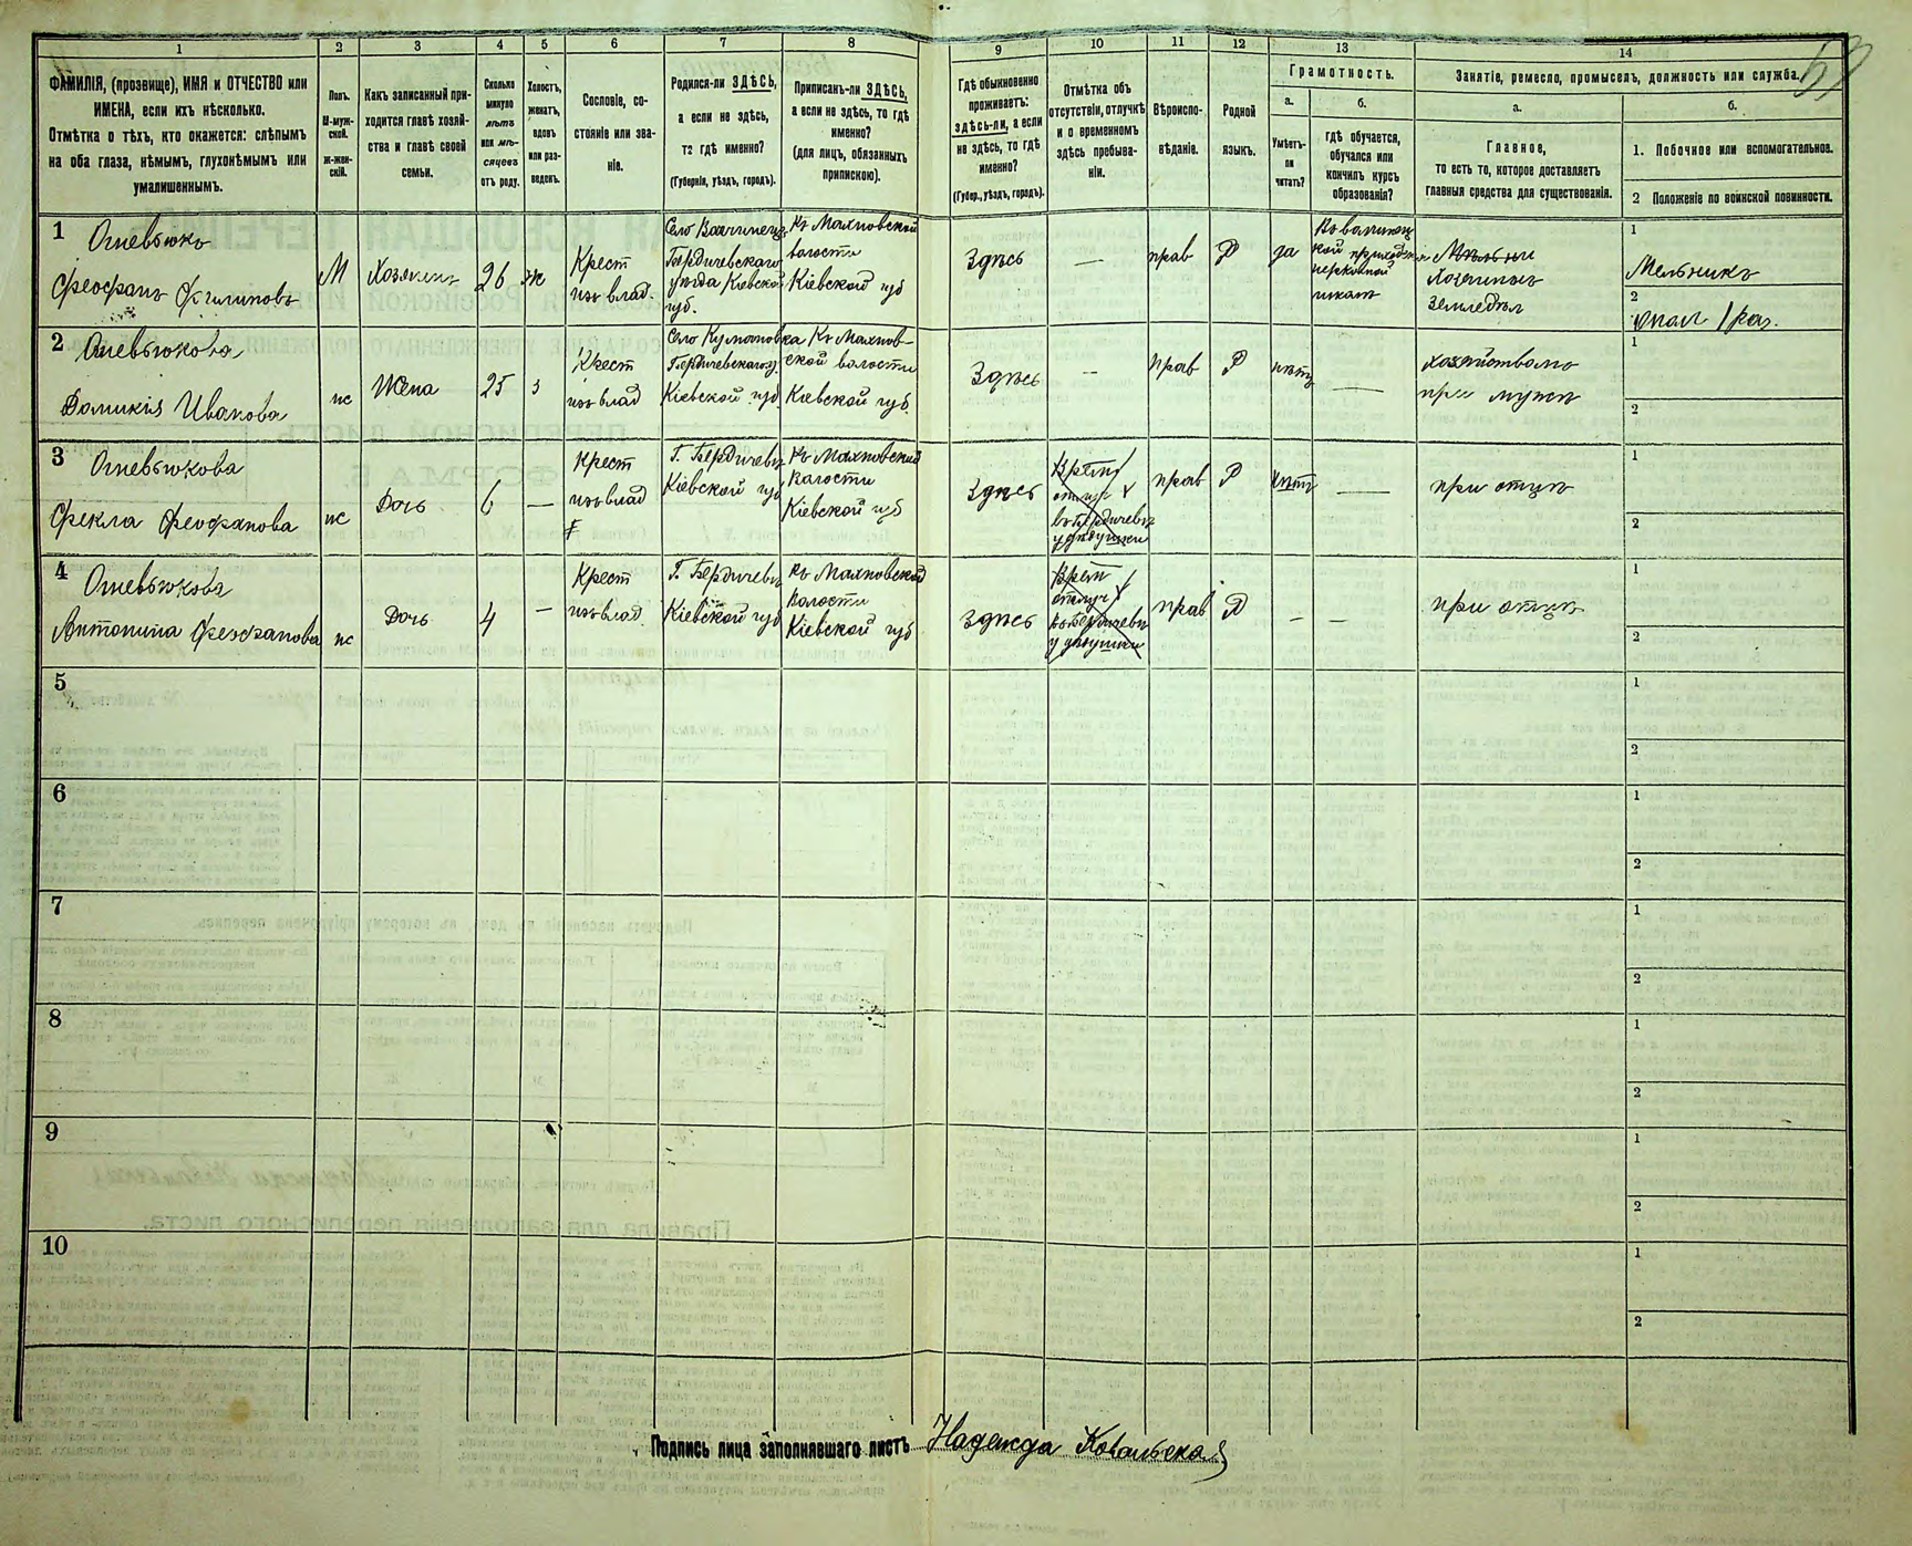 1
2
3
4
5
6
7
8
9
10
11
12
13
14
ФАМИЛІЯ, (прозвище), ИМЯ и ОТЧЕСТВО или
ИМЕНА, если ихъ нѣсколько.
Отмѣтка о тѣхъ, кто окажется: слѣпымъ
на оба глаза, нѣмымъ, глухонѣмымъ или
умалишеннымъ.
Полъ.
М-муж-
ской.
ж-жен-
скій.
Какъ записанный при-
ходится главѣ хозяй-
ства и главѣ своей
семьи.
Сколько
минуло
лѣтъ
или мѣ-
сяцевъ
отъ роду.
Холостъ,
женатъ,
вдовъ
или раз-
веденъ.
Сословіе, со-
стояніе или зва-
ніе.
Родился-ли ЗДѢСЬ,
а если не здѣсь,
то гдѣ именно?
(Губернія, уѣздъ, городъ).
Приписанъ-ли ЗДѢСЬ,
а если не здѣсь, то гдѣ
именно?
(для лицъ, обязанныхъ
припискою).
Гдѣ обыкновенно
проживаетъ:
здѣсь-ли, а если
не здѣсь, то гдѣ
именно?
(Губер., уѣздъ, городъ).
Отмѣтка объ
отсутствіи, отлучкѣ
и о временномъ
здѣсь пребыва-
ніи.
Вѣроиспо-
вѣданіе.
Родной
языкъ.
Грамотность.
а.
б.
Умѣетъ-
ли
читать?
гдѣ обучается,
обучался или
кончилъ курсъ
образованія?
Занятіе, ремесло, промыселъ, должность или служба.
а.
б.
Главное,
то есть то, которое доставляетъ
главныя средства для существованія.
1. Побочное или вспомогательное.
2 Положеніе по воинской повинности.
1
Огневьюкъ
Феофанъ Филиповъ
М
Хозяинъ
26
ж
Крест
изъ влад.
Село
Бердичевскаго
уѣзда Кіевской
губ.
Къ Махновской
волости
Кіевской губ
Здѣсь
—
прав
Р
да
церковной
Хозяинъ
Земледѣл
1
Мельникъ
2
2
Огневьюкова
Домникія Иванова
ж
Жена
25
з
Крест
изъ влад
Село Кумановка
Бердичевскаго у
Кіевской губ
Къ Махнов-
ской волости
Кіевской губ.
Здѣсь
—
прав
Р
нѣтъ
—
хозяйствомъ
при мужѣ
1
2
3
Огневьюкова
Фекла Феофанова
ж
Дочь
6
—
Крест
изъ влад
Г. Бердичевъ
Кіевской губ
Къ Махновской
Волости
Кіевской губ
Здѣсь
въ Бердичевъ
у дѣдушки
прав
Р
нѣтъ
—
при отцѣ
1
2
4
Огневьюкова
Антонина Феофанова
ж
Дочь
4
—
Крест
изъ влад
Г. Бердичевъ
Кіевской губ
Къ Махновской
Волости
Кіевской губ
здѣсь
въ Бердичевъ
у дѣдушки
прав
Р
—
—
при отцѣ
1
2
5
1
2
6
1
2
7
1
2
8
1
2
9
1
2
10
1
2
Подпись лица заполнявшаго листъ Надежда Ковальская